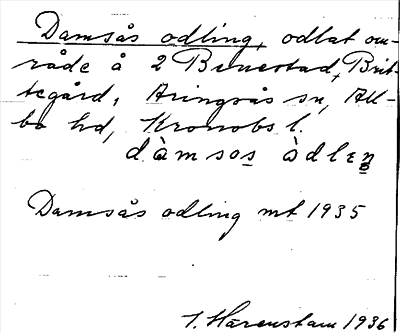 Damsås odling, odlat om-
råde å 2 Benestad, Brit-
tegård, Aringsås sn, All-
bo hd, Kronobs l.
dàmsos àdlen
Damsås odling mt 1935
I. Härenstam 1936